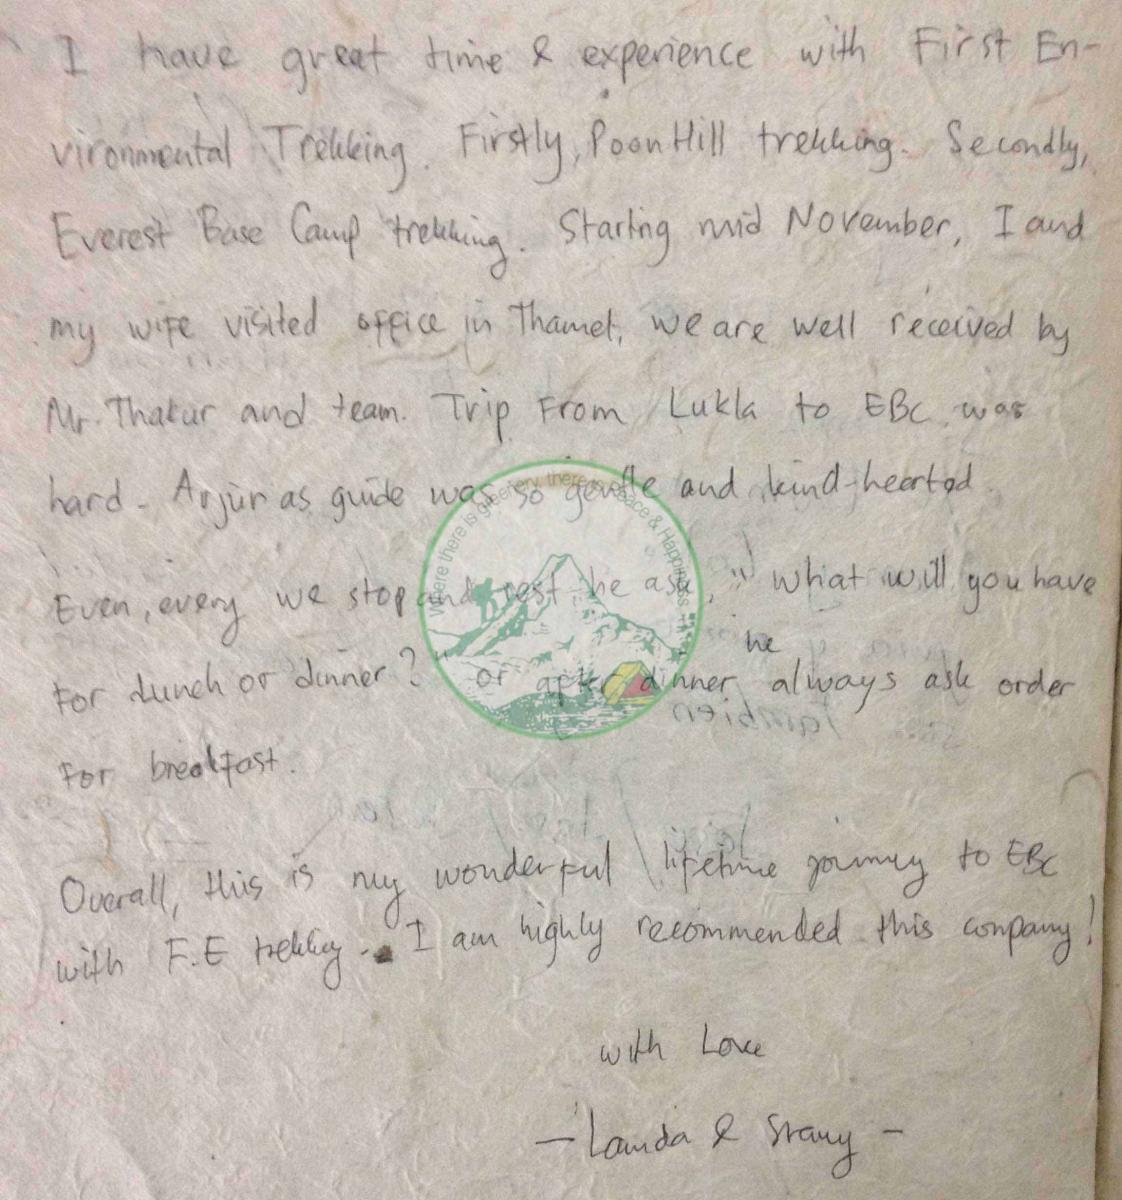 I have great time & experience with First En-
vironmental Trekking. Firstly, Poon Hill trekking. Secondly,
Everest Base Camp trekking. Starting mid November, I and
my wife visited office in Thamel, we are well received by
Mr. Thakur and team. Trip From Lukla to EBC was
hard. Arjun as guide was so gentle and kind-hearted.
Even, every we stop and rest, he ask, " what will you have
he
For Lunch or dinner? " or after dinner always ask order
For breakfast.
Overall, this is my wonderful lifetime journey to EBC
with F.E trekking. I am highly recommended this company!
with Love
- & -
Where there is greenery, there is Peace & Happiness